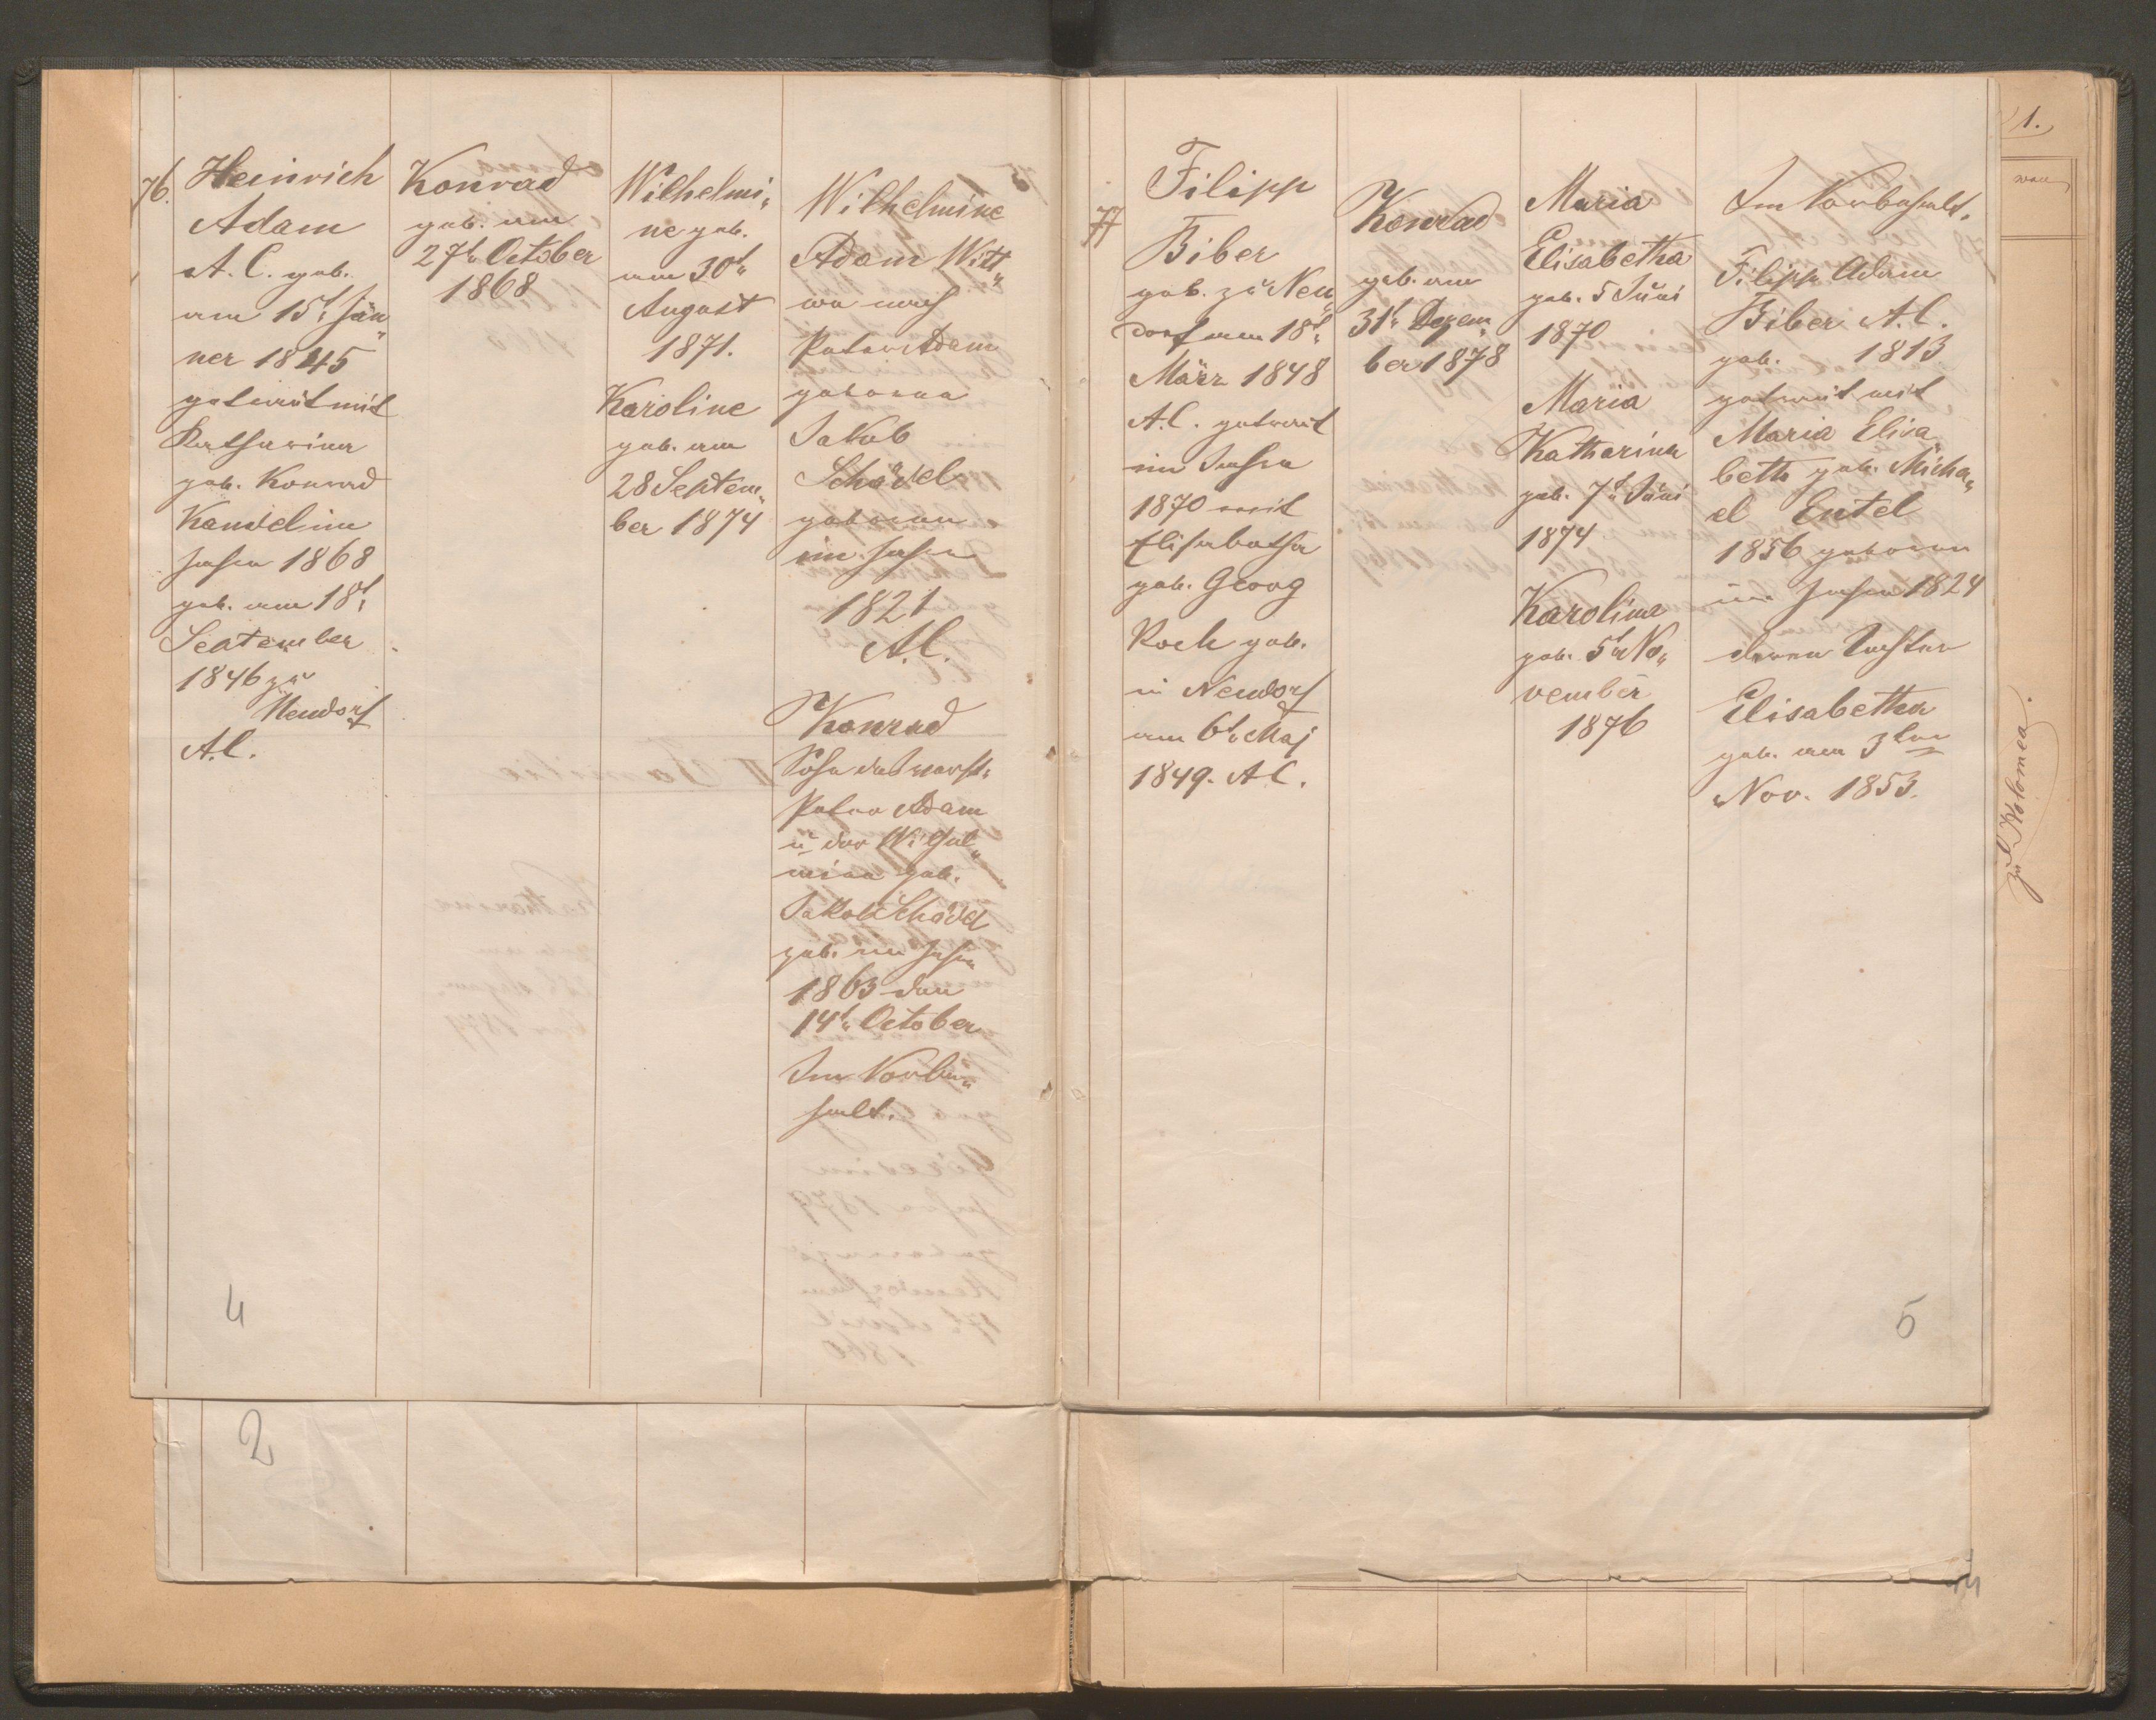 76.
Heinrich
Adam
A. C. geb.
am 15t Jän„
ner 1845
getraut mit
Katharina
geb. Konrad
Kandel im
Jahre 1868
geb. am 18t
Seatember
1846 zu
Neudorf
A. C.
Konrad
geb. am
27t„ October
1868
Wilhelmi„
ne geb.
am 30t„
August
1871.
Karoline
geb. am
28 Septem„
ber 1874
Wilhelmine
Adam Witt„
we nach
Peter Adam
geborne
Jakob
Schädel
geboren
im Jahre
1821
A. C.
Konrad
Sohn des verst.
Peter Adam
u der Wilhel„
mine geb.
Jakob Schädel
geb. im Jahre
1863 den
14t„ October
Im Vorbe„
halt.
4
2
77
Filipp
Biber
geb. zu Neu„
dorf am 18t„
März 1848
A. C. getraut
im Jahre
1870 mit
Elisabetha
geb. Georg
Koch geb.
in Neudorf
am 6t„ Maj
1849. A C.
Konrad
geb. am
31t„ Dezem„
ber 1878
Maria
Elisabetha
geb. 5 Juni
1870
Maria
Katharina
geb. 7t„ Juni
1874
Karolina
geb. 5t„ No„
vember
1876
Im Vorbehalt.
Filipp Adam
Biber A. C.
geb. 1813
getraut mit
Maria Elisa„
beth geb. Micha„
el Entel
1856 geboren
im Jahre 1824
deren Tochter
Elisabetha
geb. am 3ten
Nov. 1853.
5
1.
zu Kolomea.